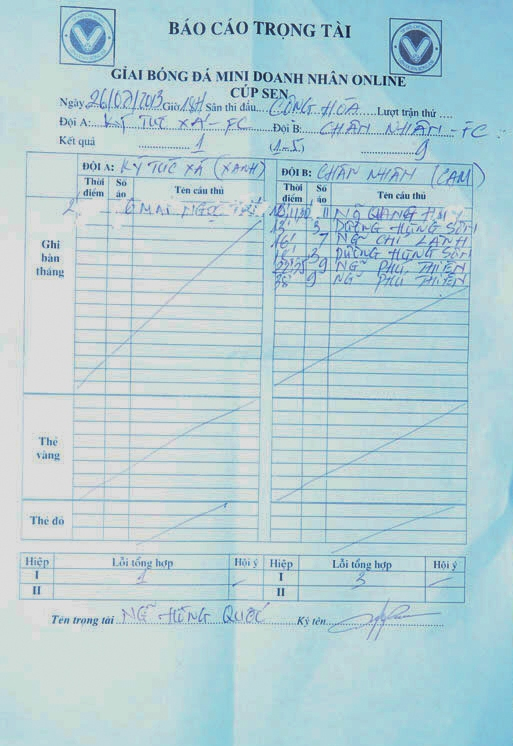 BÁO CÁO TRỌNG TÀI
GIẢI BÓNG ĐÁ MINI DOANH NHÂN ONLINE
CÚP SEN
Ngày 26/02/2013 Giờ 18H Sân thi đấu CỘNG HÒA Lượt trận thứ ...
Đội A: KÝ TÚC XÁ-FC Đội B: CHÂN NHÂN-FC
Kết quả 1 9
ĐỘI A: KÝ TÚC XÁ (XANH) ĐỘI B: CHÂN NHÂN (CAM)
Thời điểm Số áo Tên cầu thủ Thời điểm Số áo Tên cầu thủ
Ghi bàn thắng
2 MAI NGỌC 11 QUANG HUY
13' 3 DƯƠNG HÙNG SƠN
16' 7 NG CHÍ LÀNH
3 DƯƠNG HÙNG SƠN
9 NG PHÚ THIỆN
38' 9 NG PHÚ THIỆN
Thẻ vàng
Thẻ đỏ
Hiệp Lỗi tổng hợp Hội ý Hiệp Lỗi tổng hợp Hội ý
I 1 I 3
II II
Tên trọng tài NG HÙNG QUỐC Ký tên